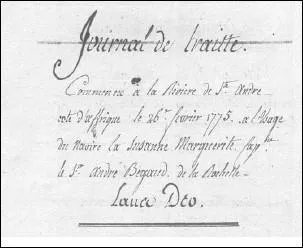 Journal de traitte.
Commencé a la Riviere de St. André
coste d'affrique le 26e. fevrier 1775. a l'Usage
du Navire la Susanne Marguerite, Capne.
le Sr. André Begaud, de la Rochelle
Laus Deo.